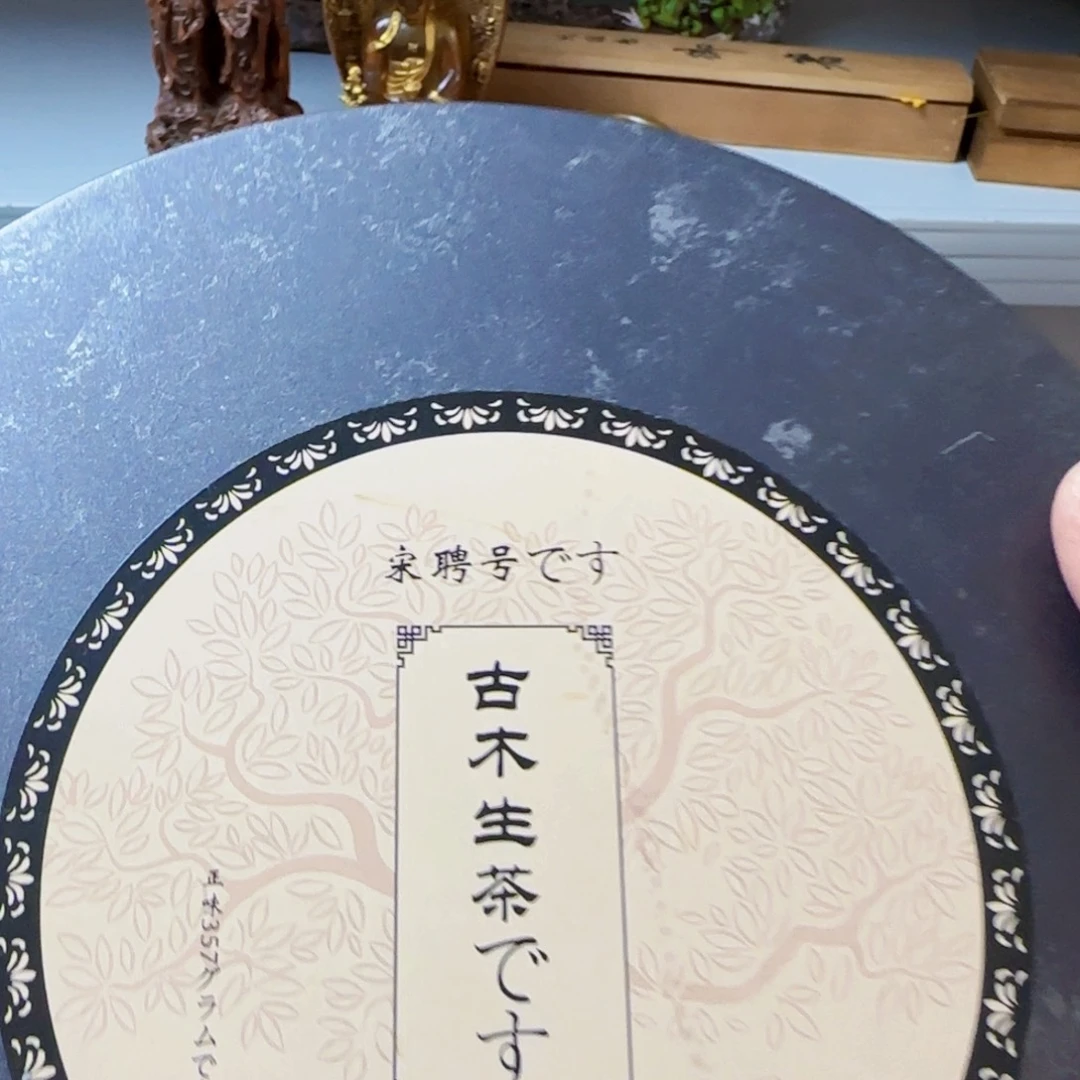 宋聘号です
古木生茶です
正味357グラムで